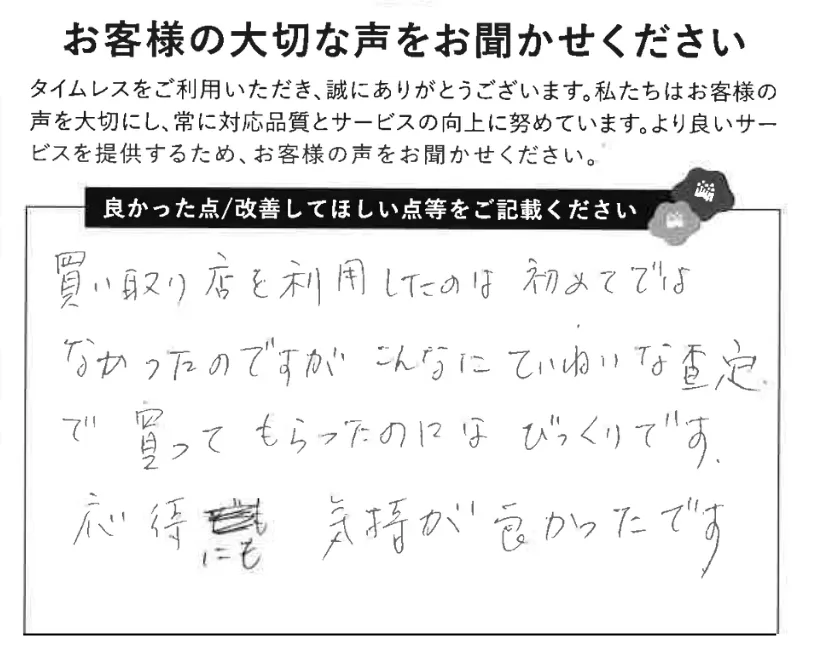 お客様の大切な声をお聞かせください
タイムレスをご利用いただき、誠にありがとうございます。私たちはお客様の
声を大切にし、常に対応品質とサービスの向上に努めています。より良いサー
ビスを提供するため、お客様の声をお聞かせください。
良かった点/改善してほしい点等をご記載ください
買い取り店を利用したのは 初めてでは
なかったのですが こんなに ていねいな査定
で 買って もらったのには びっくりです.
応待 気持が良かったです
にも